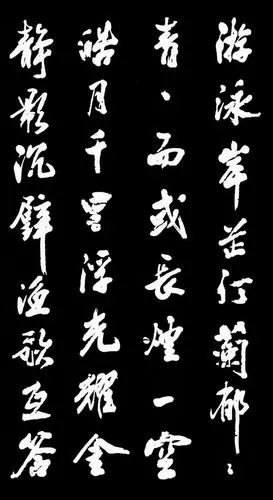 游泳岸芷汀蘭郁〻
青〻而或長煙一空
皓月千里浮光耀金
静影沉璧漁歌互答